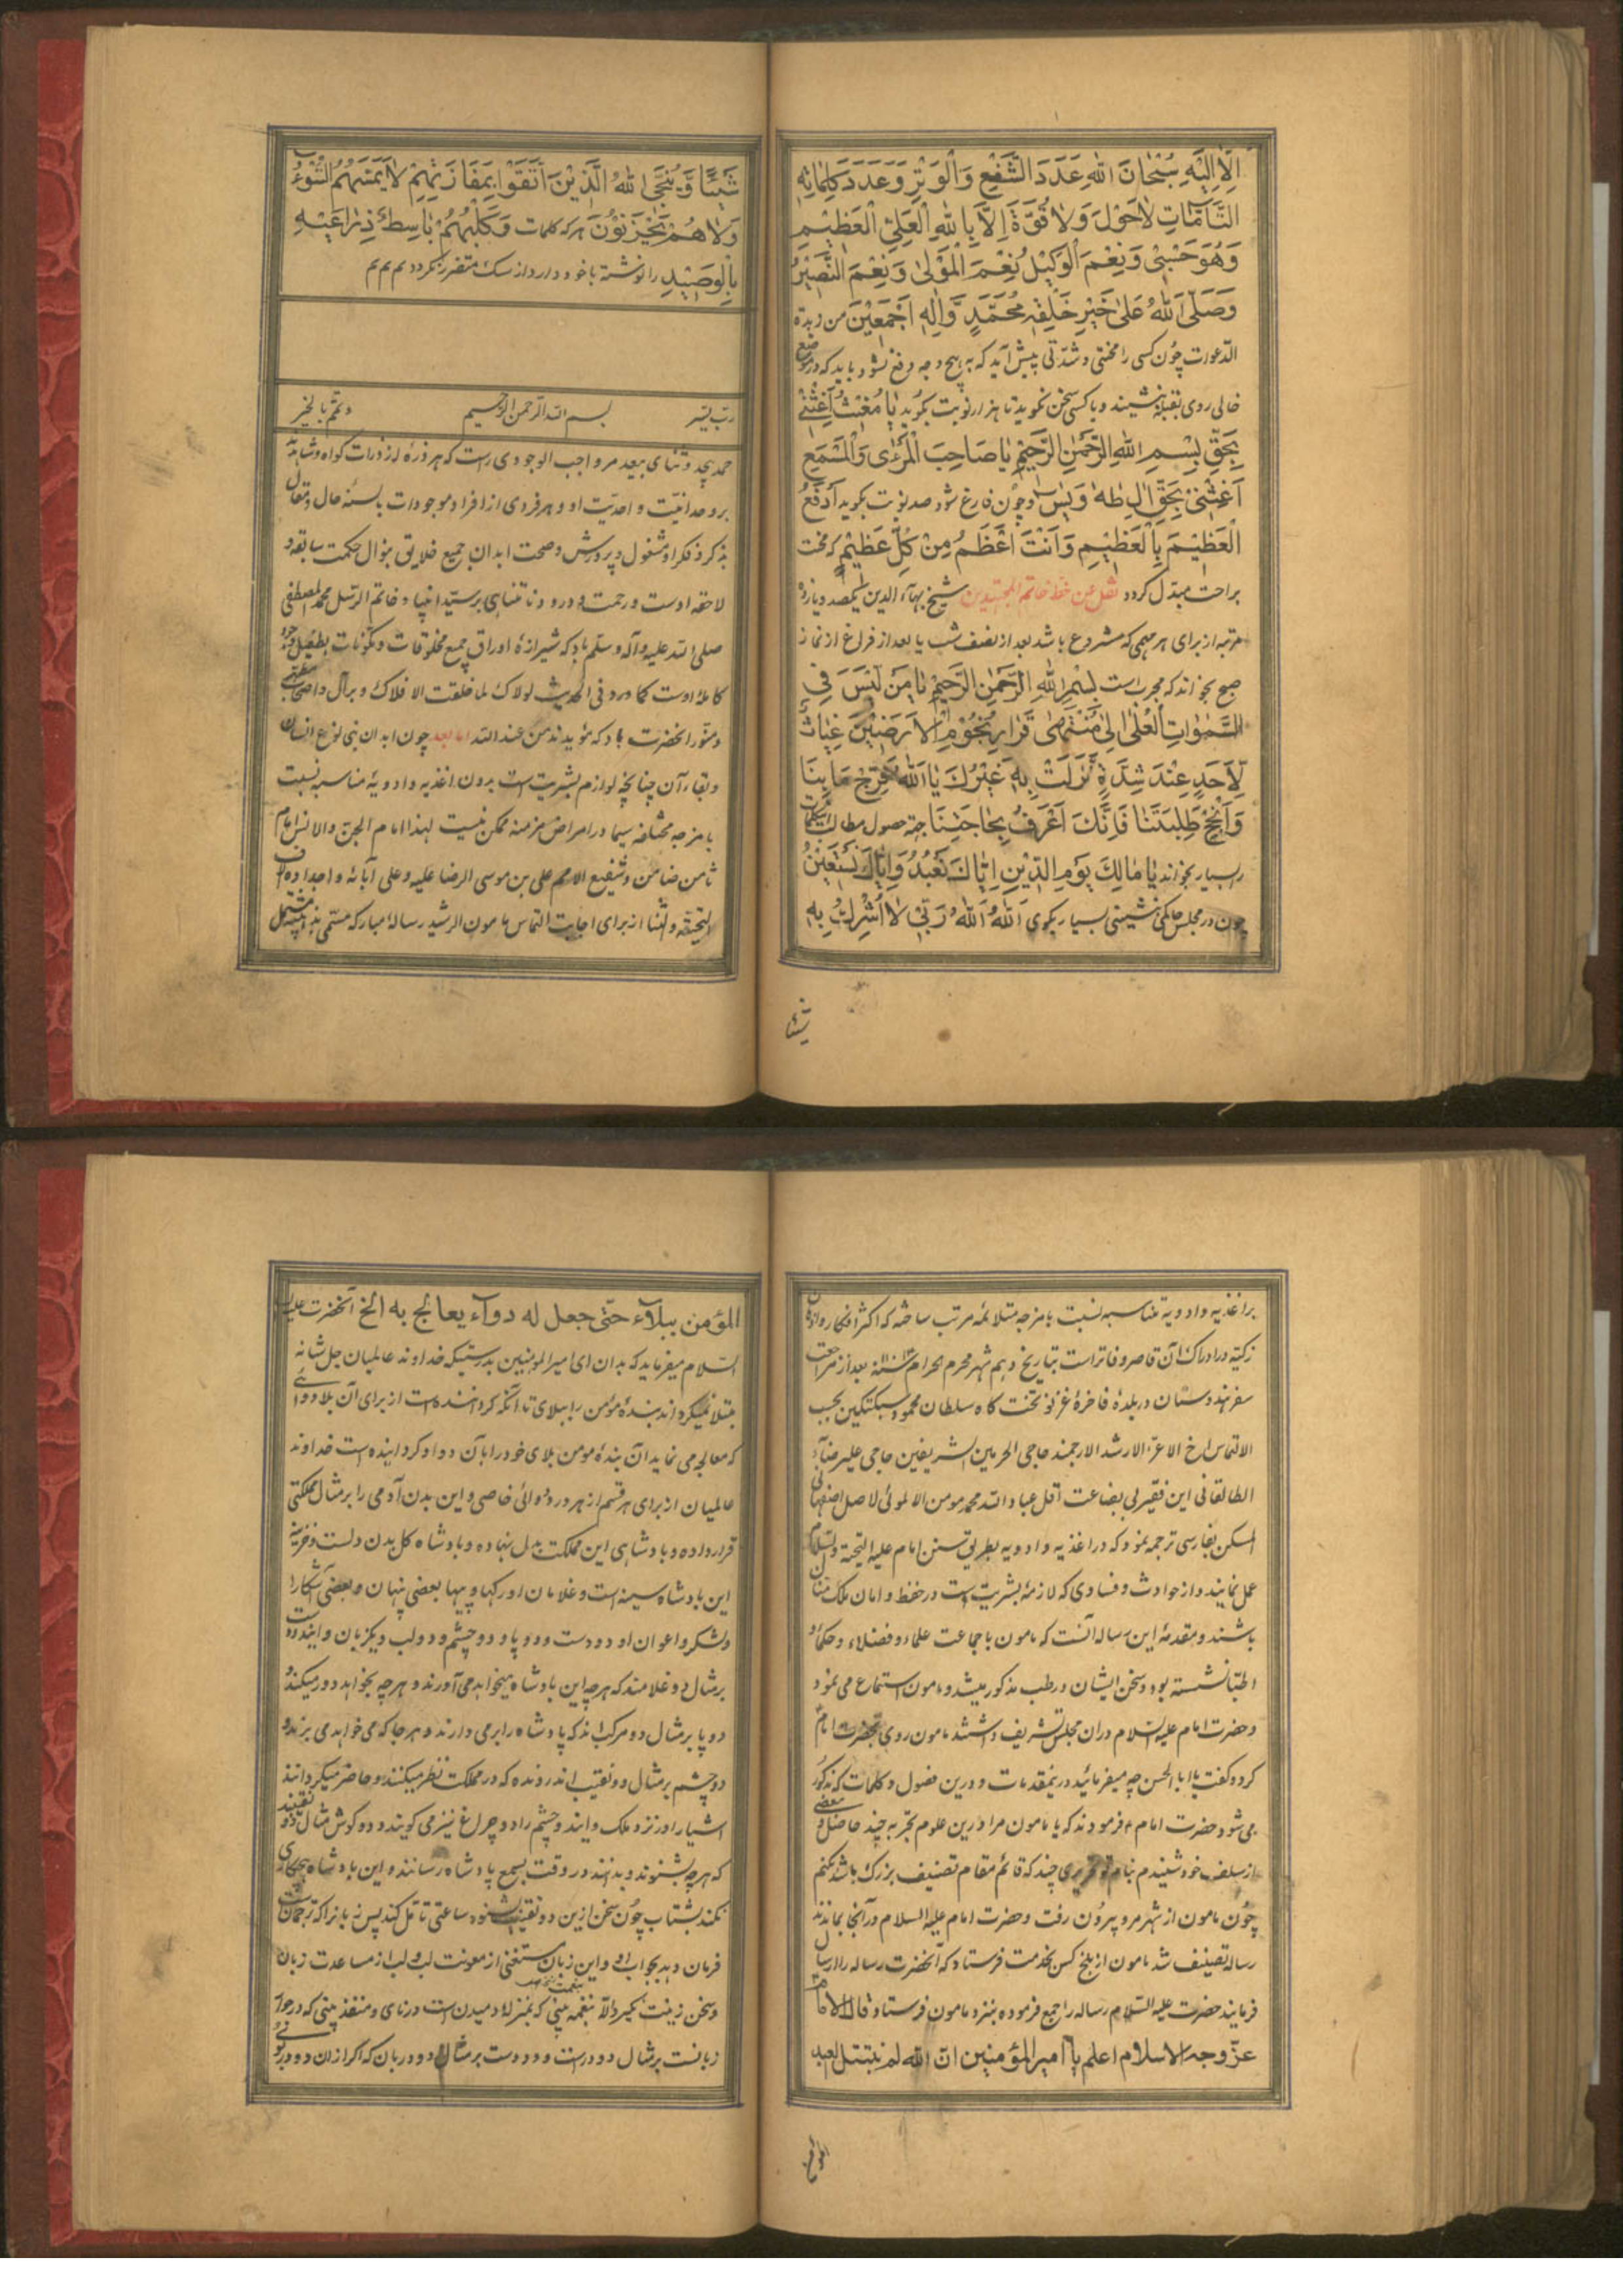 اِلَّا اِلَیْهِ سُبْحَانَ اللهِ عَدَدَ الشَّفْعِ وَالْوَتْرِ وَعَدَدَ کَلِمَاتِهِ
التَّامَّاتِ لَاحَوْلَ وَلَا قُوَّةَ اِلَّا بِاللهِ الْعَلِیِّ الْعَظِیْمِ
وَهُوَ حَسْبِیْ وَنِعْمَ الْوَکِیْلُ نِعْمَ الْمَوْلیٰ وَنِعْمَ النَّصِیْرُ
وَصَلَّی اللهُ عَلیٰ خَیْرِ خَلْقِهِ مُحَمَّدٍ وَّاٰلِهِ اَجْمَعِیْنَ من زبدة
الدعوات چون کسی را محنتی و شدتی پیش آید که به هیچ وجه دفع نشود باید که در موضع
خالی روی بقبله نشیند و با کسی سخن نگوید تا هزار نوبت بگوید یَا مُغِیْثُ اَغِثْنِیْ
بِحَقِّ بِسْمِ اللهِ الرَّحْمٰنِ الرَّحِیْمِ یَا صَاحِبَ الْمَرْءٰی وَالْمَسْمَعِ
اَغِثْنِیْ بِحَقِّ اٰلِ طٰهٰ وَیٰسٓ و چون فارغ شود صد نوبت بگوید اَدْفَعُ
الْعَظِیْمَ بِالْعَظِیْمِ وَاَنْتَ اَعْظَمُ مِنْ کُلِّ عَظِیْمٍ که محنت
براحت مبدل گردد نقل عن خط خاتم المجتهدین شیخ بهاء الدین یکصد و یازده
مرتبه از برای هر مهمی که مشروع باشد بعد از نصف شب یا بعد از فراغ از نماز
صبح بخواند که مجرب است بِسْمِ اللهِ الرَّحْمٰنِ الرَّحِیْمِ یَا مَنْ لَیْسَ فِی
السَّمٰوَاتِ الْعُلیٰ اِلیٰ مُنْتَهیٰ قَرَارِ تُخُوْمِ الْاَرَضِیْنَ غِیَاثٌ
لِاَحَدٍ عِنْدَ شِدَّةٍ نَزَلَتْ بِهِ غَیْرُكَ یَا اَللهُ فَرِّجْ مَا بِنَا
وَاَنْجِحْ طَلِبَتَنَا فَاِنَّكَ اَعْرَفُ بِحَاجَتِنَا جهة حصول مطالب اینکلمات
را بسیار بخواند یَا مَالِكَ یَوْمِ الدِّیْنِ اِیَّاكَ نَعْبُدُ وَاِیَّاكَ نَسْتَعِیْنُ
چون در مجلس حاکمی نشینی بسیار بگوی اَللهُ اَللهُ رَبِّیْ لَا اُشْرِكُ بِهِ
شیئا
شَیْئًا وَیُنَجِّی اللهُ الَّذِیْنَ اتَّقَوْا بِمَفَازَتِهِمْ لَا یَمَسُّهُمُ السُّوْءُ
وَلَاهُمْ یَحْزَنُوْنَ هر که کلمات وَکَلْبُهُمْ بَاسِطٌ ذِرَاعَیْهِ
بِالْوَصِیْدِ را نوشته با خود دارد از سک متضرر نکردد م م م
رب یسر بسم الله الرحمن الرحیم و تمم بالخیر
حمد بیحد و ثنای بیعد مر واجب الوجودی راست که هر ذرهٔ از ذرات گواه و شاهد
بر وحدانیت و احدیت او و هر فردی از افراد موجودات بالسنهٔ حال و مقال
بذکر و فکر او مشغول و پرورش و صحت ابدان جمیع خلایق بمنوال حکمت سابقه و
لاحقه اوست و رحمت و درود نا متناهی بر سید انبیا و خاتم الرسل محمد المصطفی
صلی الله علیه و آله و سلم باد که شیرازهٔ اوراق جمیع مخلوقات و مکونات بطفیل وجود
کاملهٔ اوست کما ورد فی الحدیث لولاک لما خلقت الافلاک و بر آل و اصحاب
و منور انحضرت باد که مؤیدند من عند الله اما بعد چون ابدان بنی نوع انسان
و بقاء آن چنانچه لوازم بشریت است بدون اغذیه و ادویهٔ مناسبه نسبت
بامزجه مختلفه سیما در امراض مزمنه ممکن نیست لهذا امام الجن والانس امام
ثامن ضامن و شفیع الامم علی بن موسی الرضا علیه و علی آبائه و اجداده الاف
التحیة والثنا از برای اجابت التماس مامون الرشید رساله مبارکه مسمی بذهبیه مشتمل
بر اغذیه و ادویهٔ مناسبه نسبت بامزجه متلائمه مرتب ساخته که اکثر افکار و اذهان
زکیه در ادراک آن قاصر و فاتر است بتاریخ دهم شهر محرم الحرام بعد از مراجعت
سفر هندوستان در بلدهٔ فاخرهٔ غزنو تختگاه سلطان محمود سبکتکین بحسب
الالتماس اخ الاعز الارشد الارجمند حاجی الحرمین الشریفین حاجی علیرضاء
الطالقانی این فقیر بی بضاعت اقل عباد الله محمد مومن الالموتی الاصل اصفهانی
المسکن بفارسی ترجمه نمود که در اغذیه و ادویه بطریق سنن امام علیه التحیة والسلام
عمل نمایند و از حوادث و فساوی که لازمهٔ بشریت است در حفظ و امان ملک منان
باشند و مقدمهٔ این رساله آنست که مامون با جماعت علماء و فضلاء و حکماء و
اطبا نشسته بود و سخن ایشان در طب مذکور میشد و مامون استماع می نمود
و حضرت امام علیه السلام دران مجلس تشریف داشتند مامون روی بحضرت امام
کرد و گفت یا ابا الحسن چه میفرمائید درینمقدمات و درین فصول و کلمات که مذکور
می شود حضرت امام فرمودند که یا مامون مرا درین علوم تجربه چند حاصل و بعضی
از سلف خود شنیدم بنام چند که قائم مقام تصنیف بزرگ باشد بکنم
چون مامون از شهر مرو بیرون رفت و حضرت امام علیه السلام در آنجا بماندند
رساله تصنیف شد مامون از بلخ کس بخدمت فرستاد که آنحضرت رساله را ارسال
فرمایند حضرت علیه السلام رساله را جمع فرموده بنزد مامون فرستاد قال الامام
عز وجه الاسلام اعلم یا امیر المؤمنین ان الله لم یبتل العبد
المؤمن
المؤمن ببلاء حتی جعل له دواء یعالج به الخ آنحضرت علیه
السلام میفرماید که بدان ای امیر المومنین بدرستیکه خداوند عالمیان جل شانه
مبتلا نمیکرداند بندهٔ مؤمن را ببلای تا آنکه کردانیده است از برای آن بلا دوائی
که معالجه می نماید آن بندهٔ مومن بلای خود را بآن دوا و کردانیده است خداوند
عالمیان از برای هر قسم از هر درد دوائی خاصی و این بدن آدمی را بر مثال مملکتی
قرار داده و بادشاهی این مملکت بدل نهاده و بادشاه کل بدن دلست و خزینه
این بادشاه سینه است و غلامان او رکها و پیها بعضی پنهان و بعضی آشکارا
و لشکر و اعوان او دو دست و دو پا و دو چشم و دو لب و یکزبان و ایندو دست
بر مثال دو غلامند که هر چه این بادشاه میخواهد می آورند و هر چه نخواهد دور میکنند
دو پا بر مثال دو مرکب اند که پادشاه را بر می دارند و هر جا که می خواهد می برند و
دو چشم بر مثال دو نقیب اند رونده که در مملکت نظر میکنند و حاضر میکردانند
اشیا را در نزد ملک و ایندو چشم را دو چراغ نیز می کویند و دو کوش مثال دو نقیبند
که هر چه بشنوند و بدانند در وقت بسمع پادشاه رسانند و این بادشاه هیچکاری
نکند بشتاب چون سخن ازین دو نقیب شنود ساعتی تامل کند پس زبانرا که ترجمان است
فرمان دهد بجواب او و این زبان مستغنی از معونت لب و لب از مساعدت زبان
و سخن زینت نکیرد الا بنغمه بینی که بمنزله دمیدن است در نای و منفذ بینی که در جوار
زبانست بر مثال دو در است و دو دست بر مثال دو دربان که اکر ازان دو در بوئی